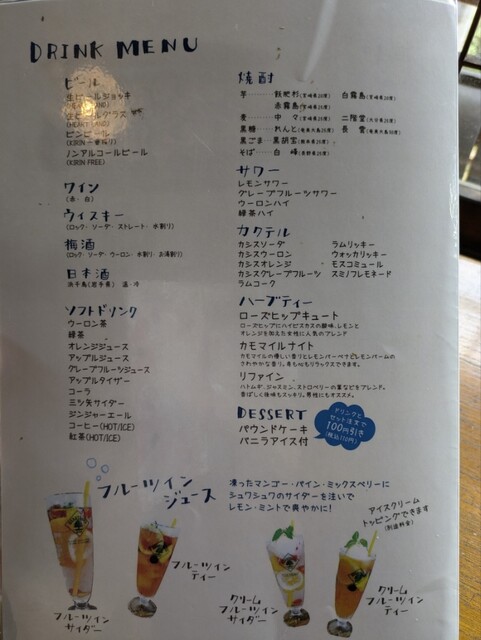 DRINK MENU
ビール
生ビールジョッキ
生ビールグラス
(HEARTLAND)
ビンビール
(KIRIN 一番搾り)
ノンアルコールビール
(KIRIN FREE)
ワイン
(赤・白)
ウィスキー
(ロック・ソーダ・ストレート・水割り)
梅酒
(ロック・ソーダ・ウーロン・水割り・お湯割り)
日本酒
浜千鳥(岩手県) 温・冷
ソフトドリンク
ウーロン茶
緑茶
オレンジジュース
アップルジュース
グレープフルーツジュース
アップルタイザー
コーラ
三ツ矢サイダー
ジンジャーエール
コーヒー(HOT/ICE)
紅茶(HOT/ICE)
焼酎
芋……飫肥杉(宮崎県20度) 白霧島(宮崎県20度)
赤霧島(宮崎県20度)
麦……中々(宮崎県20度) 二階堂(大分県20度)
黒糖…れんと(奄美大島25度) 長雲(奄美大島30度)
黒ごま…黒胡宝(熊本県25度)
そば…白峰(長野県25度)
サワー
レモンサワー
グレープフルーツサワー
ウーロンハイ
緑茶ハイ
カクテル
カシスソーダ ラムリッキー
カシスウーロン ウォッカリッキー
カシスオレンジ モスコミュール
カシスグレープフルーツ スミノフレモネード
ラムコーク
ハーブティー
ローズヒップキュート
ローズヒップにハイビスカスの酸味、レモンと
オレンジを加えた女性に人気のブレンド
カモマイルナイト
カモマイルの優しい香りとレモンバーベナ、レモンバームの
さわやかな香り。身も心もリラックスできます。
リファイン
ハトムギ、ジャスミン、ストロベリーの葉などをブレンド。
香ばしく後味もスッキリ。男性にもオススメ。
DESSERT
パウンドケーキ
バニラアイス付
ドリンクと
セット注文で
100円引き
(税込110円)
フルーツイン
ジュース
凍ったマンゴー・パイン・ミックスベリーに
シュワシュワのサイダーを注いで
レモン・ミントで爽やかに!
アイスクリーム
トッピングできます
(別途料金)
フルーツイン
サイダー
フルーツイン
ティー
クリーム
フルーツイン
サイダー
クリーム
フルーツイン
ティー